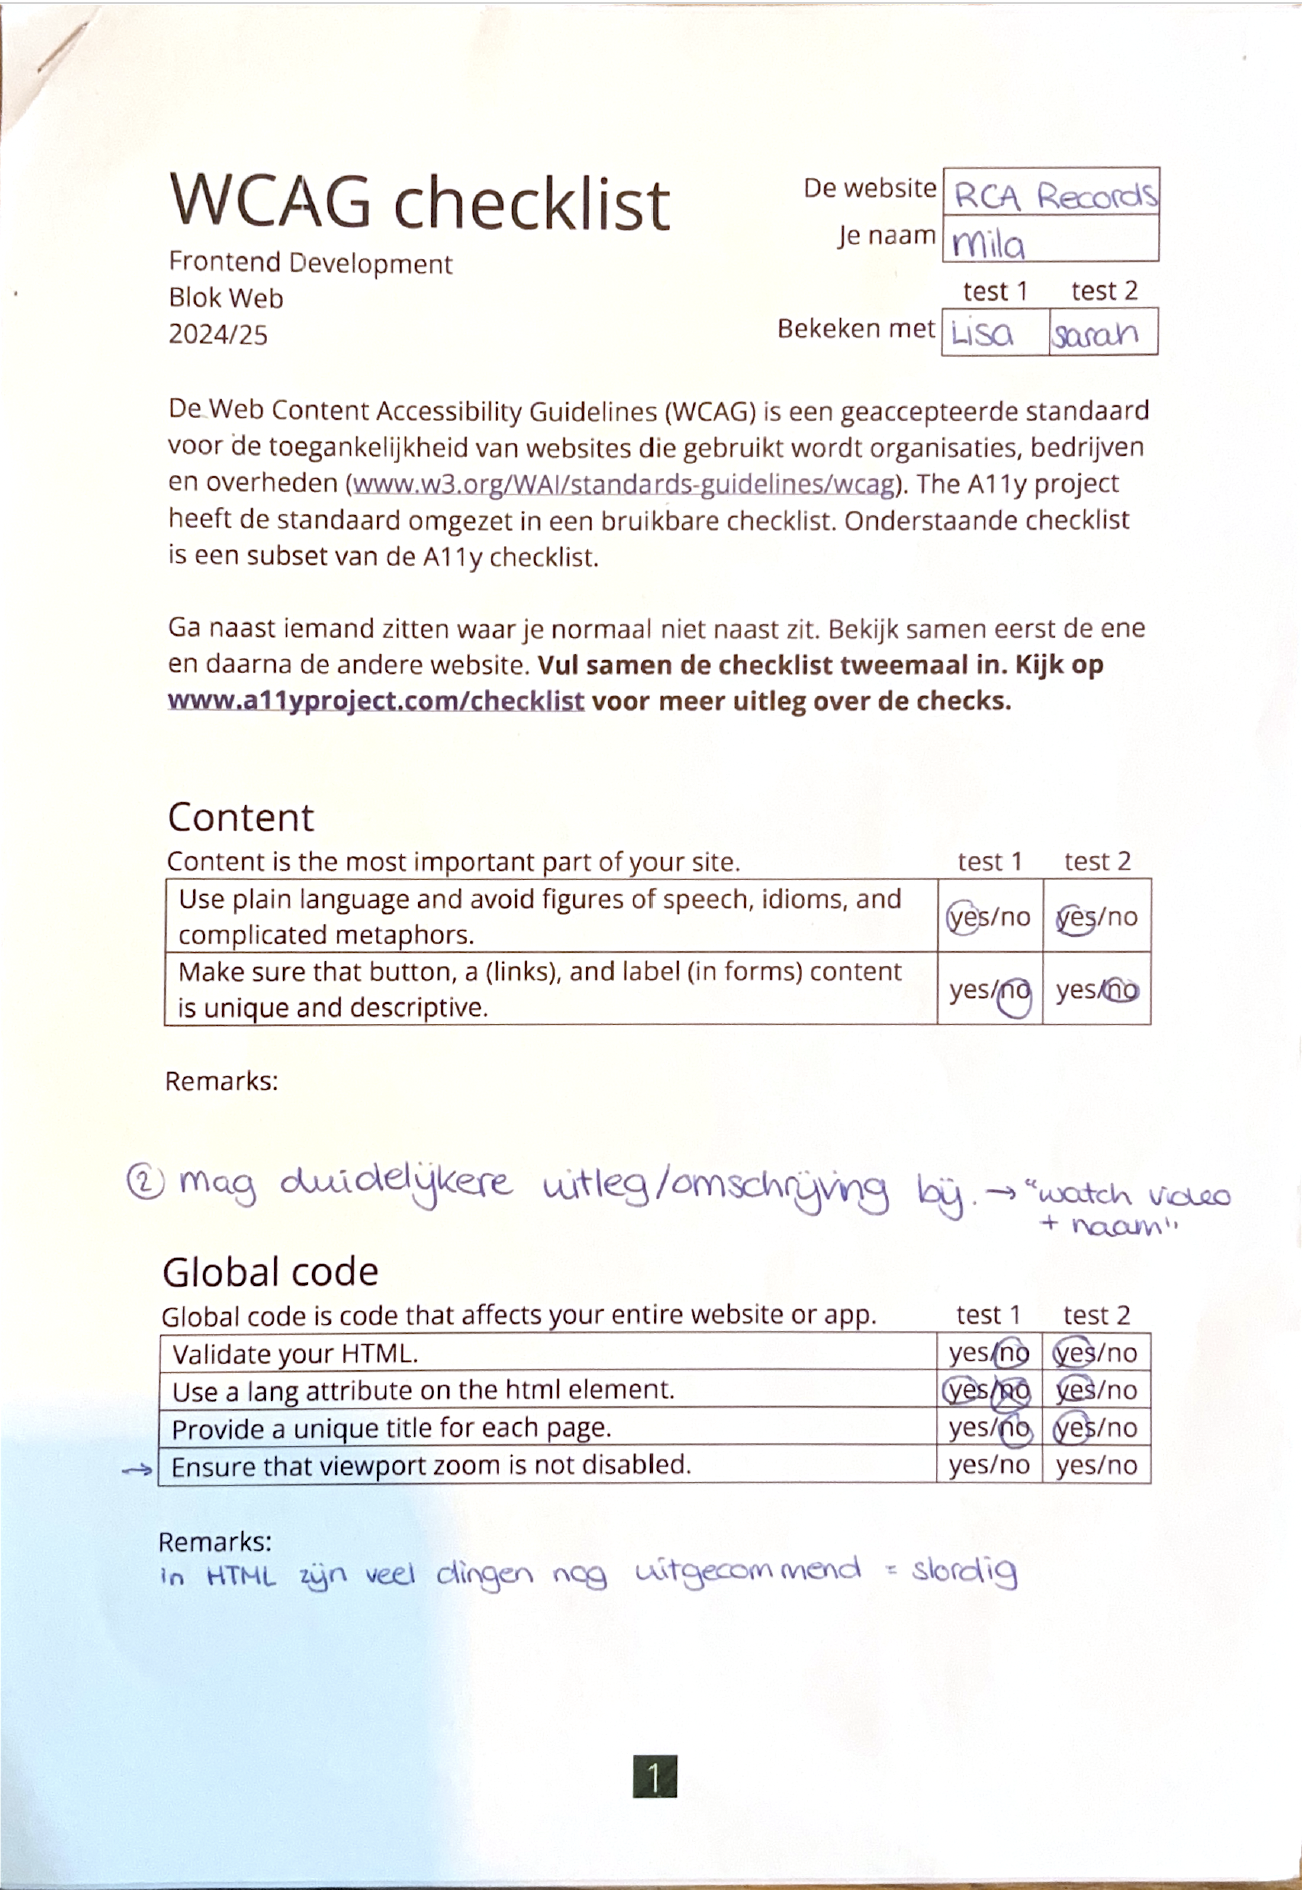 WCAG checklist
Frontend Development
Blok Web
2024/25
De website RCA Records
Je naam mila
test 1 test 2
Bekeken met Lisa sarah
De Web Content Accessibility Guidelines (WCAG) is een geaccepteerde standaard
voor de toegankelijkheid van websites die gebruikt wordt organisaties, bedrijven
en overheden (www.w3.org/WAI/standards-guidelines/wcag). The A11y project
heeft de standaard omgezet in een bruikbare checklist. Onderstaande checklist
is een subset van de A11y checklist.
Ga naast iemand zitten waar je normaal niet naast zit. Bekijk samen eerst de ene
en daarna de andere website. Vul samen de checklist tweemaal in. Kijk op
www.a11yproject.com/checklist voor meer uitleg over de checks.
Content
Content is the most important part of your site. test 1 test 2
Use plain language and avoid figures of speech, idioms, and
complicated metaphors. yes/no yes/no
Make sure that button, a (links), and label (in forms) content
is unique and descriptive. yes/no yes/no
Remarks:
② mag duidelijkere uitleg/omschrijving bij. → "watch video
+ naam"
Global code
Global code is code that affects your entire website or app. test 1 test 2
Validate your HTML. yes/no yes/no
Use a lang attribute on the html element. yes/no yes/no
Provide a unique title for each page. yes/no yes/no
→ Ensure that viewport zoom is not disabled. yes/no yes/no
Remarks:
in HTML zijn veel dingen nog uitgecommend = slordig
1